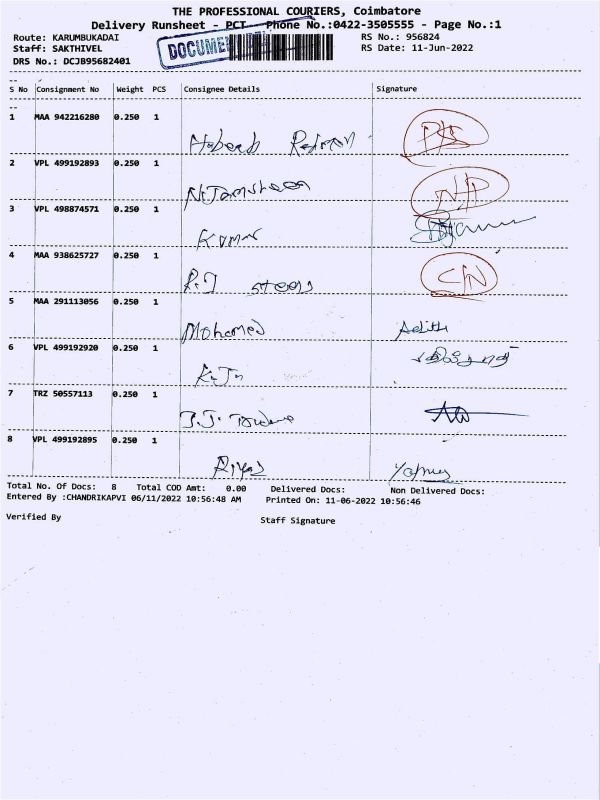 THE PROFESSIONAL COURIERS, Coimbatore
Delivery Runsheet - PCT Phone No.:0422-3505555 - Page No.:1
Route: KARUMBUKADAI RS No.: 956824
Staff: SAKTHIVEL RS Date: 11-Jun-2022
DRS No.: DCJB95682401
DOCUME
S No Consignment No Weight PCS Consignee Details Signature
1 MAA 942216280 0.250 1
2 VPL 499192893 0.250 1
3 VPL 498874571 0.250 1
Kumar
4 MAA 938625727 0.250 1
R.J steels C/N
5 MAA 291113056 0.250 1
Mohamed
6 VPL 499192920 0.250 1
7 TRZ 50557113 0.250 1
8 VPL 499192895 0.250 1
Riyas
Total No. Of Docs: 8 Total COD Amt: 0.00 Delivered Docs: Non Delivered Docs:
Entered By :CHANDRIKAPVI 06/11/2022 10:56:48 AM Printed On: 11-06-2022 10:56:46
Verified By Staff Signature